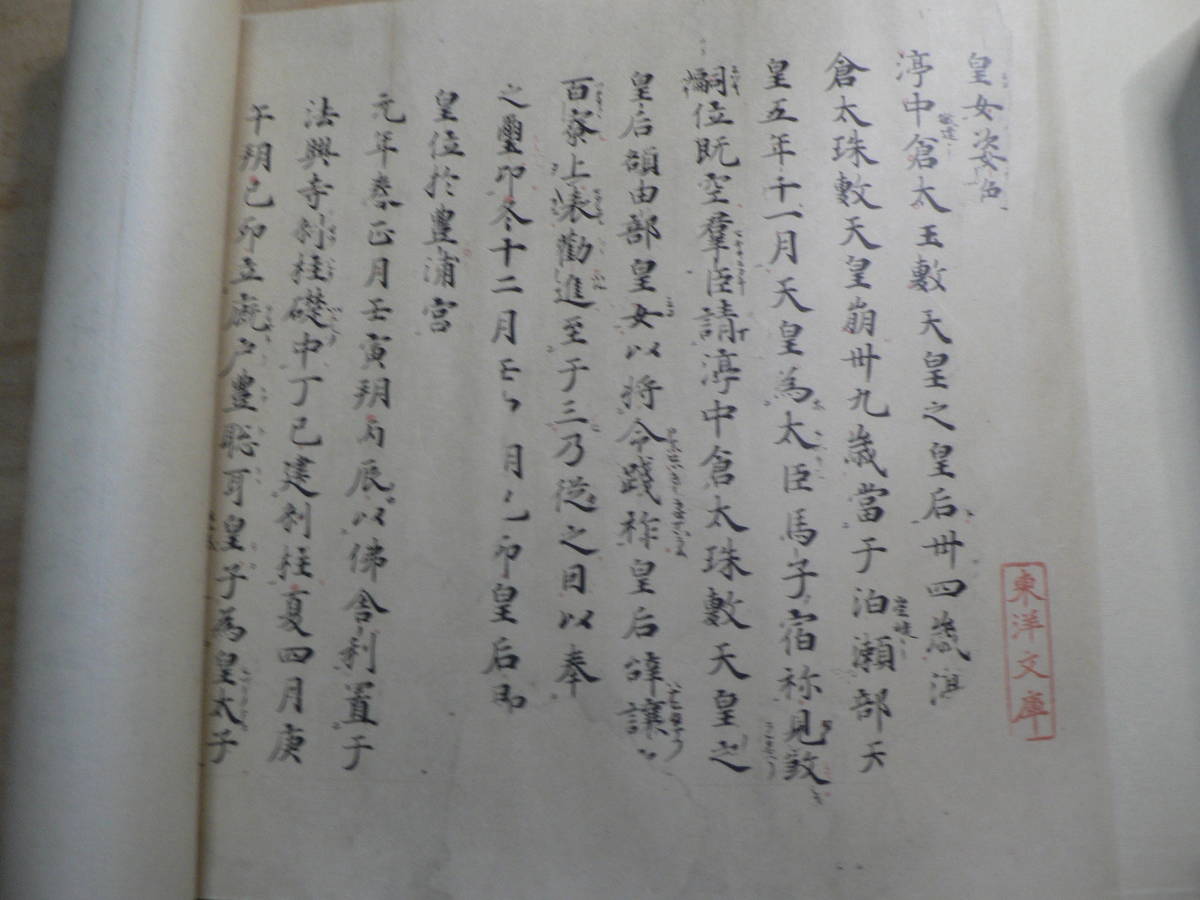 皇女姿色
渟中倉太玉敷天皇之皇后卅四歳渟
倉太珠敷天皇崩卅九歳當于泊瀬部天
皇五年十一月天皇為太臣馬子宿祢見敓
嗣位既空羣臣請渟中倉太珠敷天皇之
皇后額田部皇女以將令踐祚皇后辞讓
百寮上表勸進至于三乃從之因以奉
之璽印冬十二月壬 月己卯皇后即
皇位於豊浦宮
元年春正月壬寅朔丙辰以佛舎利置于
法興寺刹柱礎中丁巳建刹柱夏四月庚
午朔己卯立廐戸豊聡耳皇子為皇太子
東洋文庫